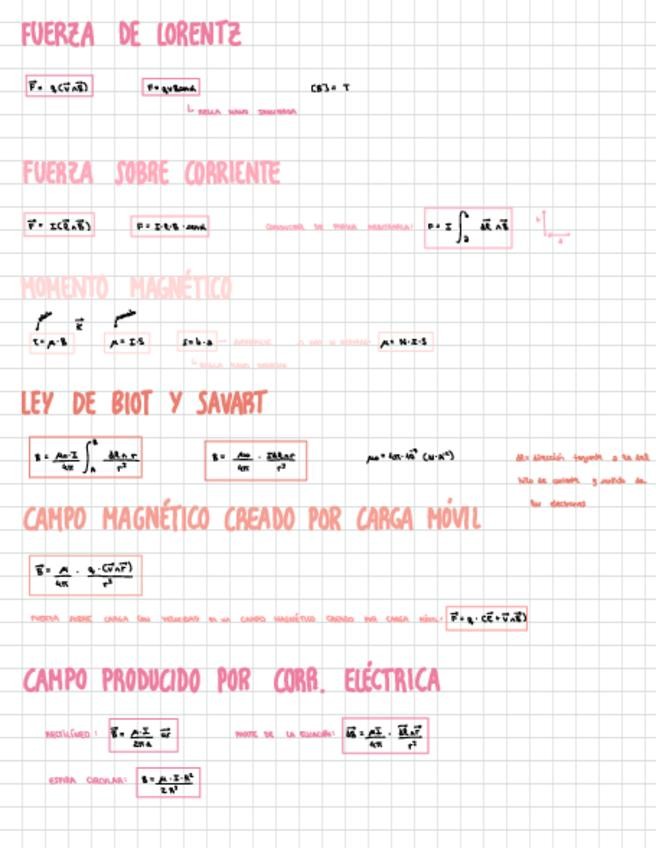 FUERZA DE LORENTZ
F⃗ = q(v⃗∧B⃗) F=qvBsenα [B]= T
↳ REGLA MANO IZQUIERDA
FUERZA SOBRE CORRIENTE
F⃗ = I(ℓ⃗∧B⃗) F= I·ℓ·B·senα CONDUCTOR DE FORMA ARBITRARIA: F= I ∫ dℓ⃗ ∧B⃗
MOMENTO MAGNÉTICO
τ= μ·B μ= I·S S=b·a μ= N·I·S
LEY DE BIOT Y SAVART
B= μ₀·I/4π ∫ dℓ∧r/r³ B= μ₀/4π · Idℓ∧r/r³ μ₀= 4π·10⁻⁷ (N·A⁻²) dℓ= dirección tangente a la del
hilo de corriente y sentido de
los electrones
CAMPO MAGNÉTICO CREADO POR CARGA MÓVIL
B⃗= μ/4π · q·(v⃗∧r⃗)/r³
FUERZA SOBRE CARGA CON VELOCIDAD EN UN CAMPO MAGNÉTICO CREADO POR CARGA MÓVIL: F⃗=q·(E⃗+v⃗∧B⃗)
CAMPO PRODUCIDO POR CORR. ELÉCTRICA
RECTILÍNEO: B⃗= μ·I/2πa PARTE DE LA ECUACIÓN: dB⃗= μI/4π · dℓ⃗∧r⃗/r³
ESPIRA CIRCULAR: B= μ·I·R²/2R³